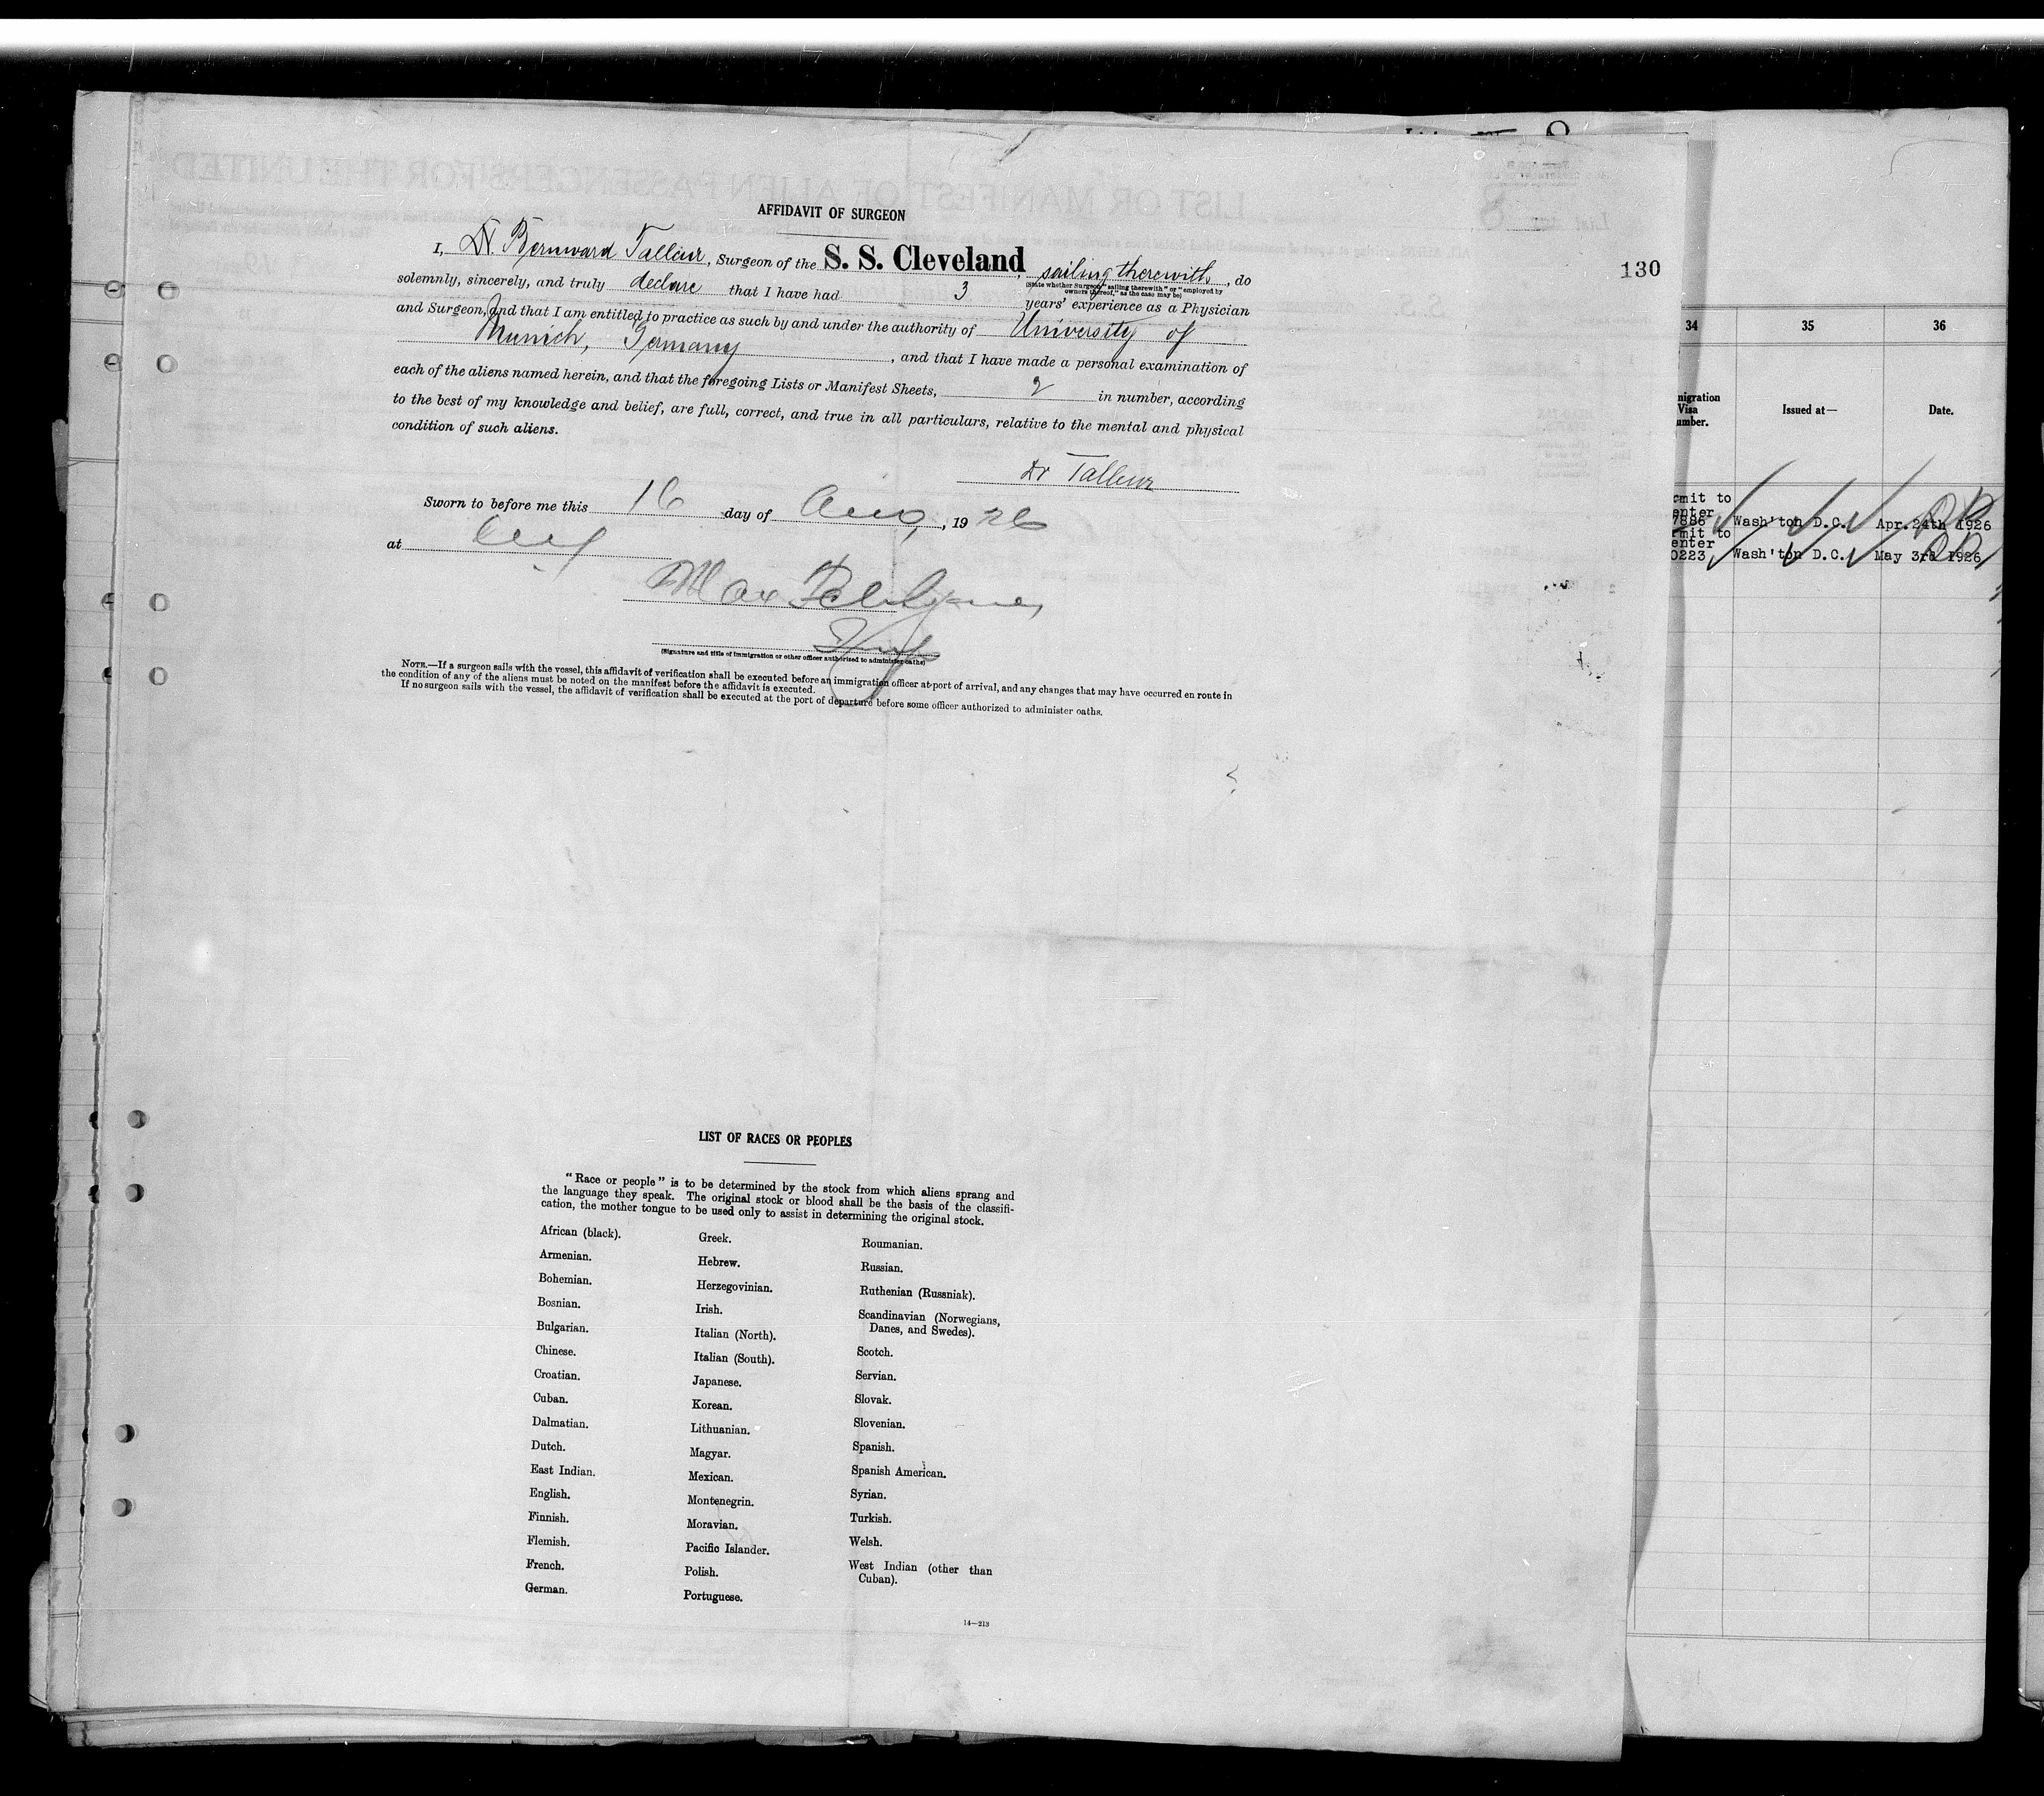 AFFIDAVIT OF SURGEON
I, Dr. Bernward Talleur, Surgeon of the S. S. Cleveland, sailing therewith, do
(State whether Surgeon "sailing therewith" or "employed by owners thereof," as the case may be)
solemnly, sincerely, and truly declare that I have had 3 years' experience as a Physician
and Surgeon, and that I am entitled to practice as such by and under the authority of University of
Munich, Germany, and that I have made a personal examination of
each of the aliens named herein, and that the foregoing Lists or Manifest Sheets, 2 in number, according
to the best of my knowledge and belief, are full, correct, and true in all particulars, relative to the mental and physical
condition of such aliens.
Dr Talleur
Sworn to before me this 16 day of Aug, 1926
at
Max
(Signature and title of immigration or other officer authorized to administer oaths)
NOTE.—If a surgeon sails with the vessel, this affidavit of verification shall be executed before an immigration officer at port of arrival, and any changes that may have occurred en route in
the condition of any of the aliens must be noted on the manifest before the affidavit is executed.
If no surgeon sails with the vessel, the affidavit of verification shall be executed at the port of departure before some officer authorized to administer oaths.
LIST OF RACES OR PEOPLES
"Race or people" is to be determined by the stock from which aliens sprang and
the language they speak. The original stock or blood shall be the basis of the classifi-
cation, the mother tongue to be used only to assist in determining the original stock.
African (black).
Armenian.
Bohemian.
Bosnian.
Bulgarian.
Chinese.
Croatian.
Cuban.
Dalmatian.
Dutch.
East Indian.
English.
Finnish.
Flemish.
French.
German.
Greek.
Hebrew.
Herzegovinian.
Irish.
Italian (North).
Italian (South).
Japanese.
Korean.
Lithuanian.
Magyar.
Mexican.
Montenegrin.
Moravian.
Pacific Islander.
Polish.
Portuguese.
Roumanian.
Russian.
Ruthenian (Russniak).
Scandinavian (Norwegians,
Danes, and Swedes).
Scotch.
Servian.
Slovak.
Slovenian.
Spanish.
Spanish American.
Syrian.
Turkish.
Welsh.
West Indian (other than
Cuban).
14—213
130
34 35 36
nigration
Visa
umber.
Issued at—
Date.
rmit to
enter
7886 Wash'ton D.C. Apr. 24th 1926
rmit to
enter
0223 Wash'ton D.C. May 3rd 1926